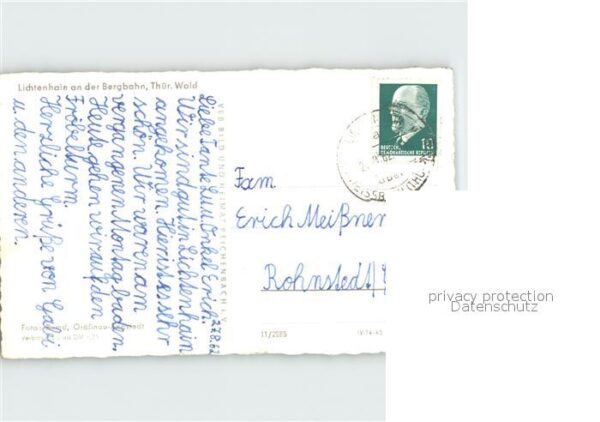 Lichtenhain an der Bergbahn, Thür. Wald
27.8.62
Liebe Tante Lulu, Onkel Erich.
Wir sind gut in Lichtenhain
angekommen. Hier ist es sehr
schön. Wir waren am
vergangenen Montag baden.
Heute gehen wir auf den
Fröbelturm
Herzliche Grüße von Gabi
u. den anderen.
VEB BILD UND HEIMAT REICHENBACH I. V.
DEUTSCHE
DEMOKRATISCHE REPUBLIK
10
Fam
Erich Meißner
Rohnstedt
11/2085
privacy protection
Datenschutz